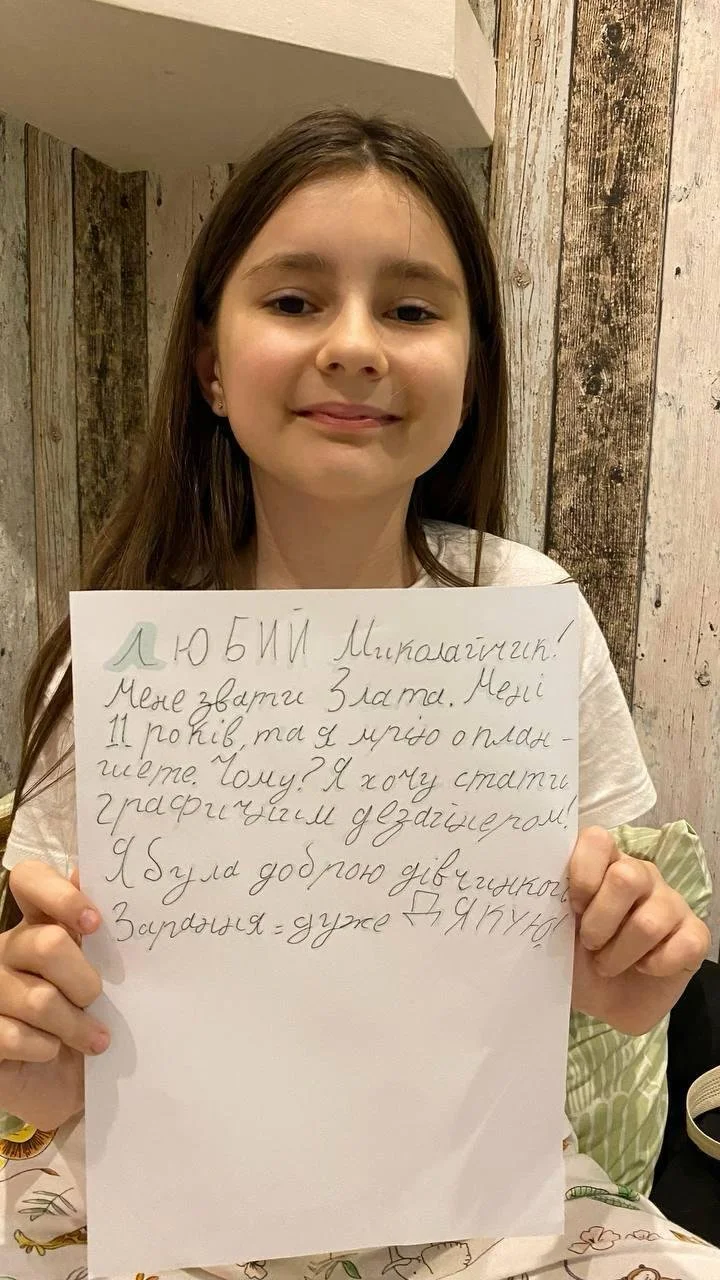 ЛЮБИЙ Миколайчик!
Мене звати Злата. Мені
11 років, та я мрію о план-
шете. Чому? Я хочу стати
графичним дезайнером!
Я була доброю дівчинкой
Зарання = дуже ДЯКУЮ!